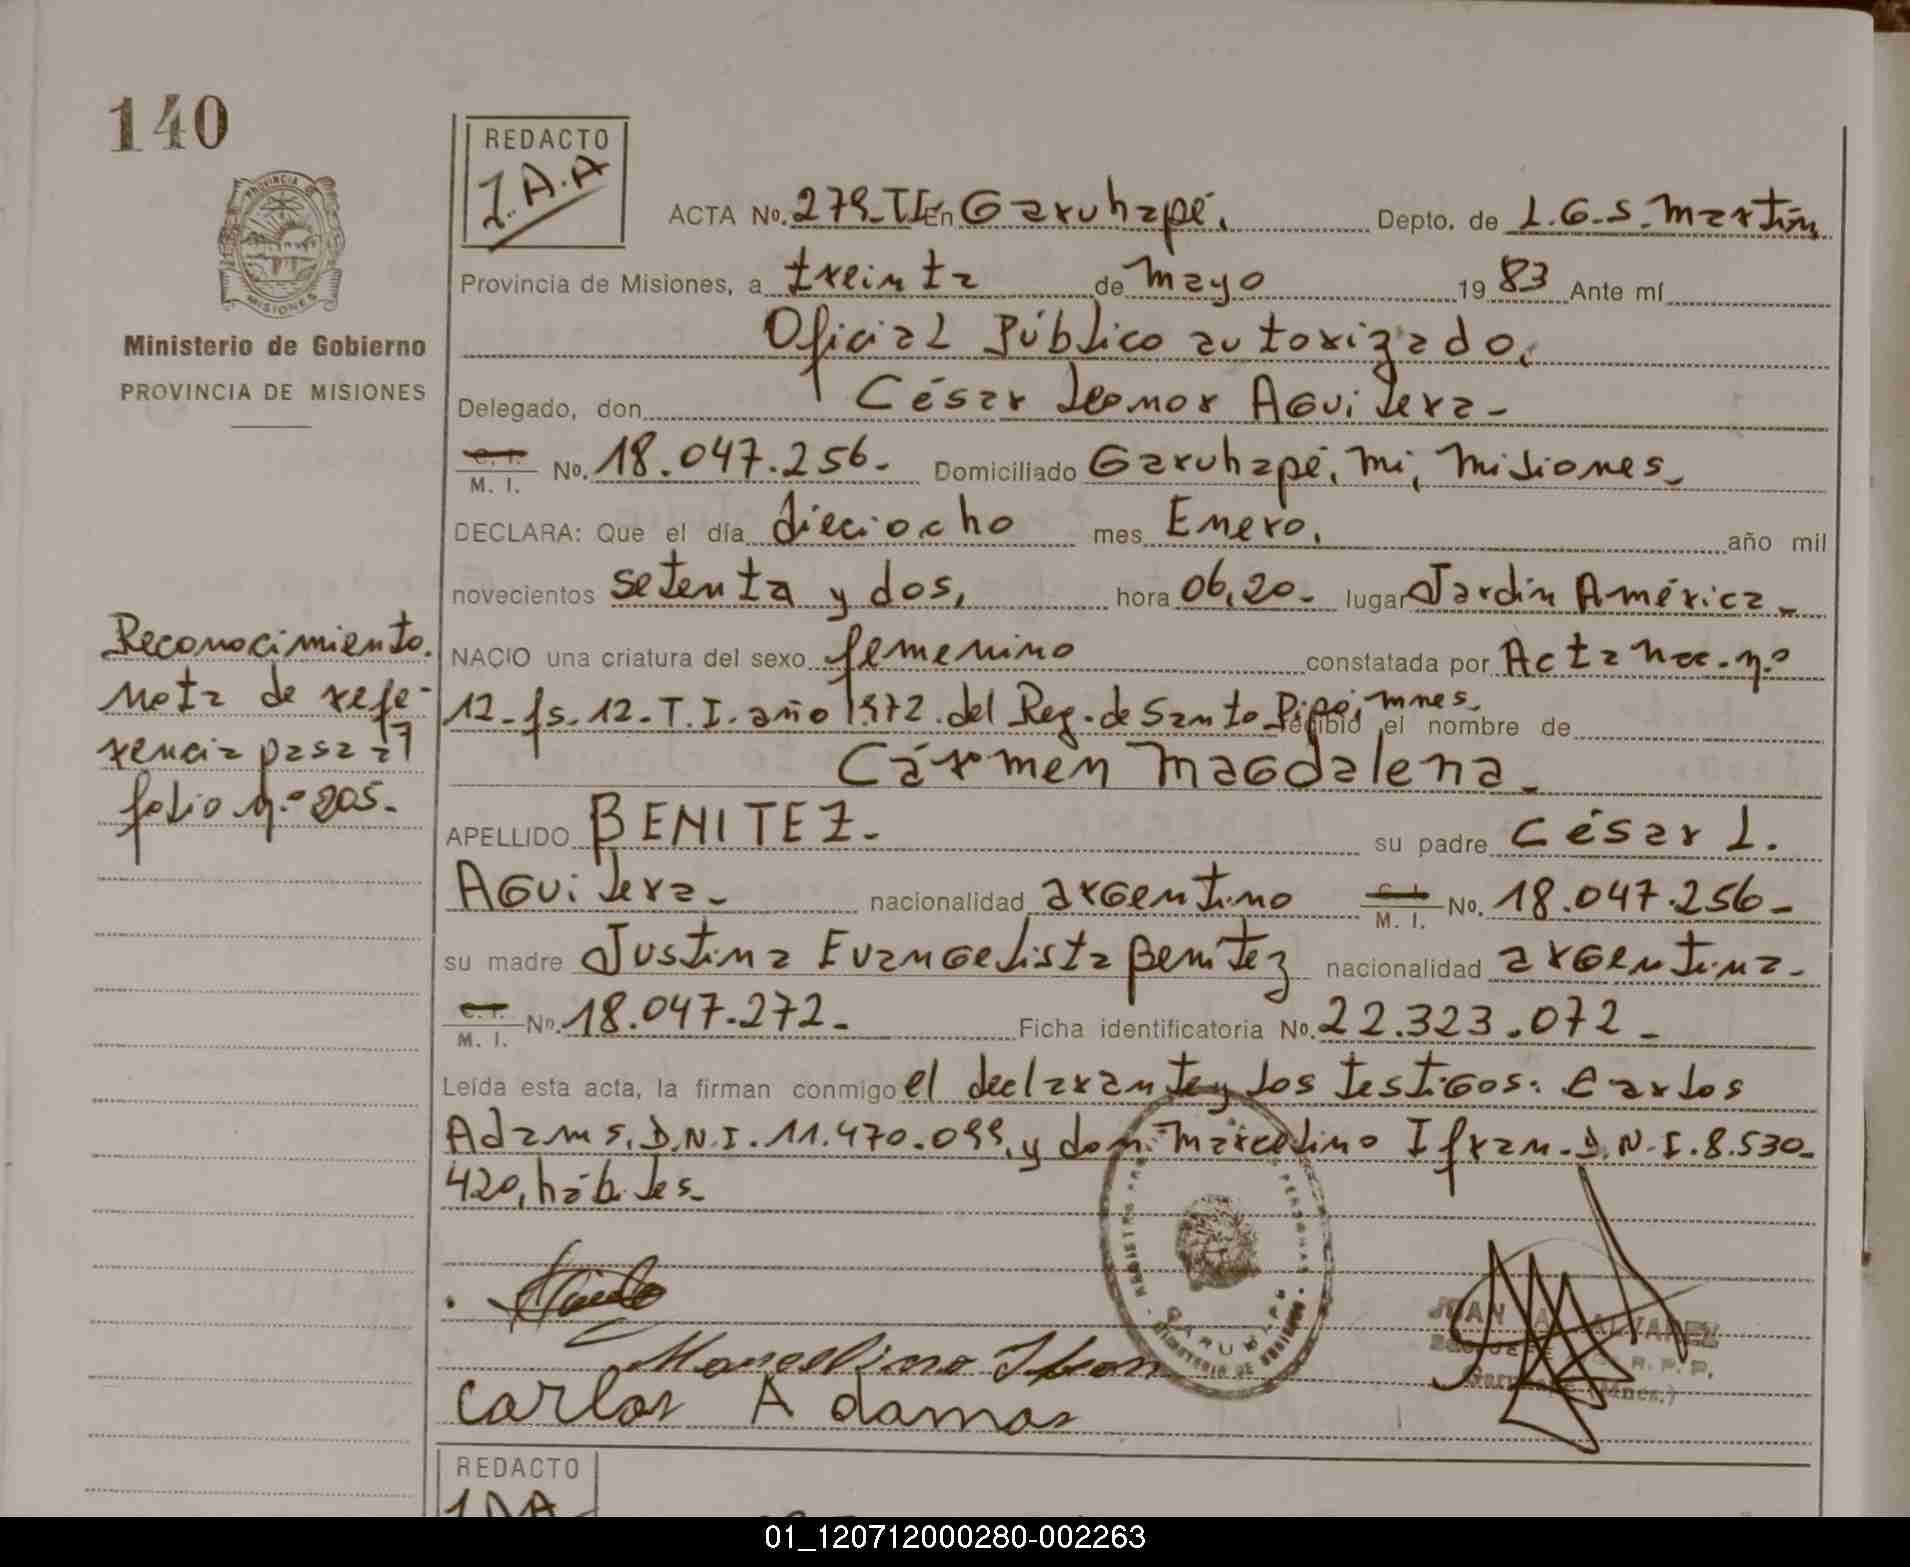 140
PROVINCIA DE
MISIONES
Ministerio de Gobierno
PROVINCIA DE MISIONES
Reconocimiento.
nota de refe-
rencia pasa al
folio n.º 205.
REDACTO
J.A.A
ACTA No. 279-TI En Garuhapé, Depto. de L.G.S. Martín
Provincia de Misiones, a treinta de mayo 19 83 Ante mí
Oficial Público autorizado,
Delegado, don César Leonor Aguilera-
C. I. M. I. No. 18.047.256- Domiciliado Garuhapé, Mi, Misiones-
DECLARA: Que el día dieciocho mes Enero, año mil
novecientos setenta y dos, hora 06,20- lugar Jardín América-
NACIO una criatura del sexo femenino constatada por Acta nac. n.º
12-fs.12-T.I. año 1972. del Reg. de Santo Pipó, mnes. recibió el nombre de
Cármen Magdalena-
APELLIDO BENITEZ- su padre César L.
Aguilera- nacionalidad argentino C. I. M. I. No. 18.047.256-
su madre Justina Evangelista Benitez nacionalidad argentina-
C. I. M. I. No. 18.047.272- Ficha identificatoria No. 22.323.072-
Leída esta acta, la firman conmigo el declarante y los testigos: Carlos
Adams, D.N.I. 11.470.099, y don Marcelino Ifran. D.N.I. 8.530-
420, hábiles-
Marcelino Ifran
Carlos Adamos
GARUHAPE
MINISTERIO DE GOBIERNO
JUAN A. ALVAREZ
R. P. P.
Garuhapé (Mnes.)
REDACTO
01_120712000280-002263